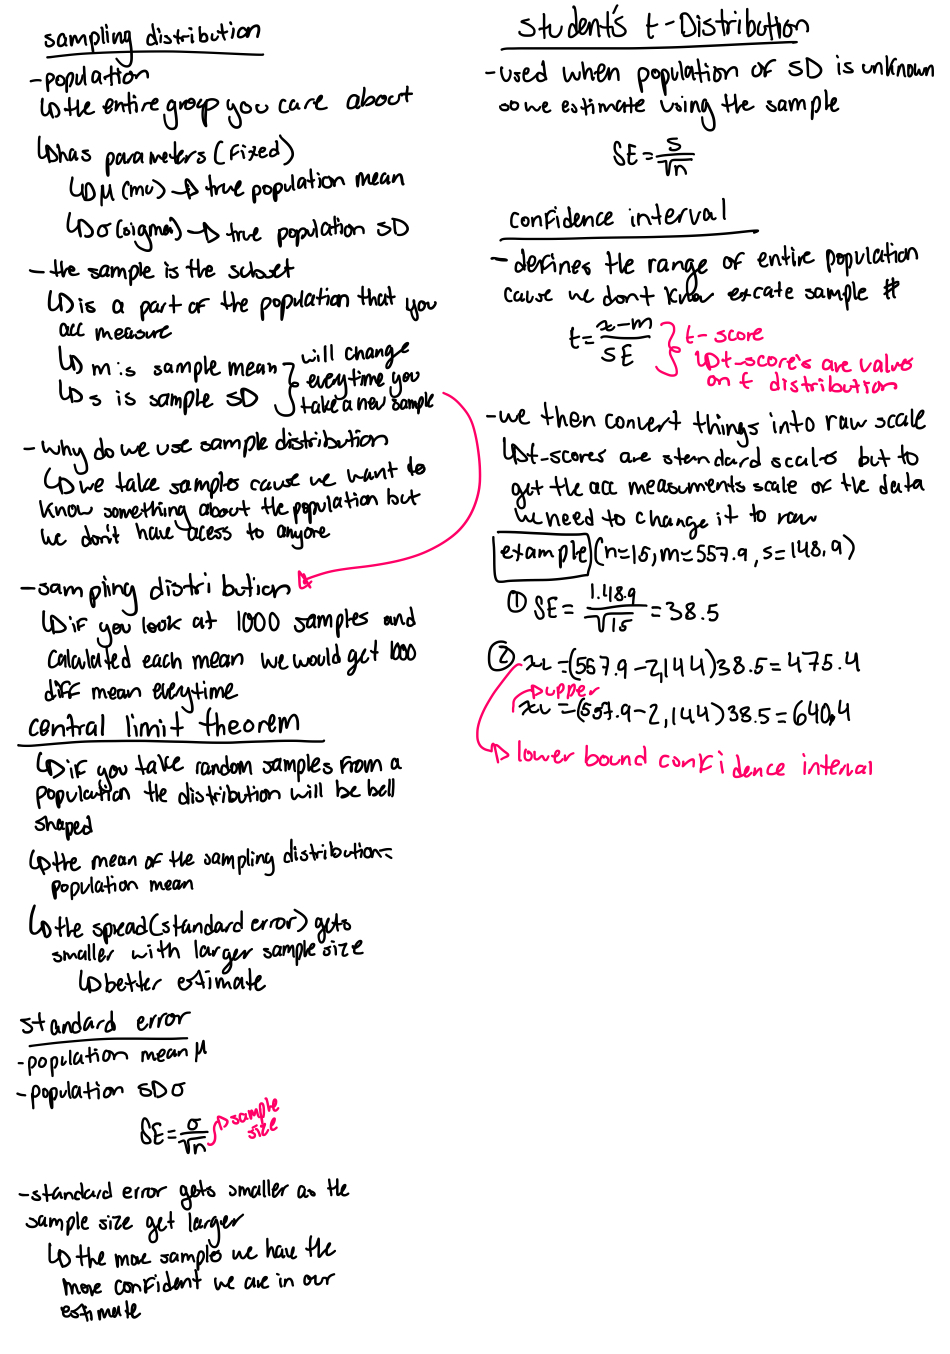 sampling distribution
-population
↳the entire group you care about
↳has parameters (fixed)
↳μ (mu) → true population mean
↳σ (sigma) → true population SD
- the sample is the subset
↳is a part of the population that you
acc measure
↳m is sample mean
↳s is sample SD
will change
everytime you
take a new sample
- why do we use sample distribution
↳we take samples cause we want to
know something about the population but
we don't have acess to anyone
-sampling distribution
↳if you look at 1000 samples and
calculated each mean we would get 1000
diff mean everytime
central limit theorem
↳if you take random samples from a
population the distribution will be bell
shaped
↳the mean of the sampling distribution=
population mean
↳the spread (standard error) gets
smaller with larger sample size
↳better estimate
standard error
-population mean μ
-population SD σ
SE=σ/√n
→sample
size
-standard error gets smaller as the
sample size get larger
↳the more samples we have the
more confident we are in our
estimate
student's t-Distribution
-used when population of SD is unknown
so we estimate using the sample
SE=s/√n
confidence interval
- defines the range of entire population
cause we dont know excate sample #
t=x-m/SE
t-score
↳t-score's are values
on t distribution
-we then convert things into raw scale
↳t-scores are standard scales but to
get the acc measuments scale of the data
we need to change it to raw
example (n=15, m=557.9, s=148.9)
① SE=1.48.9/√15=38.5
② xL=(557.9-2,144)38.5=475.4
→upper
xu=(557.9-2,144)38.5=640,4
→lower bound confidence interval